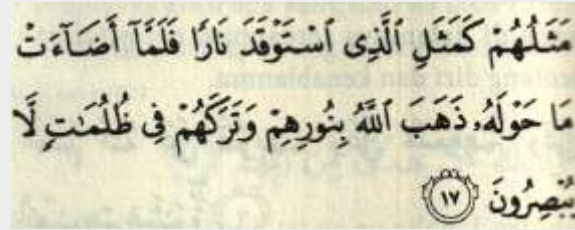 مَثَلُهُمْ كَمَثَلِ ٱلَّذِى ٱسْتَوْقَدَ نَارًا فَلَمَّآ أَضَآءَتْ
مَا حَوْلَهُۥ ذَهَبَ ٱللَّهُ بِنُورِهِمْ وَتَرَكَهُمْ فِى ظُلُمَٰتٍ لَّا
يُبْصِرُونَ ١٧